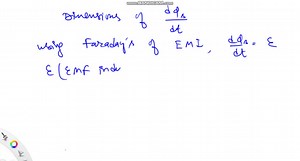 Dimensions of dφ_B/dt
using Faraday's of EMI, dφ_B/dt = ε
ε (EMF indu